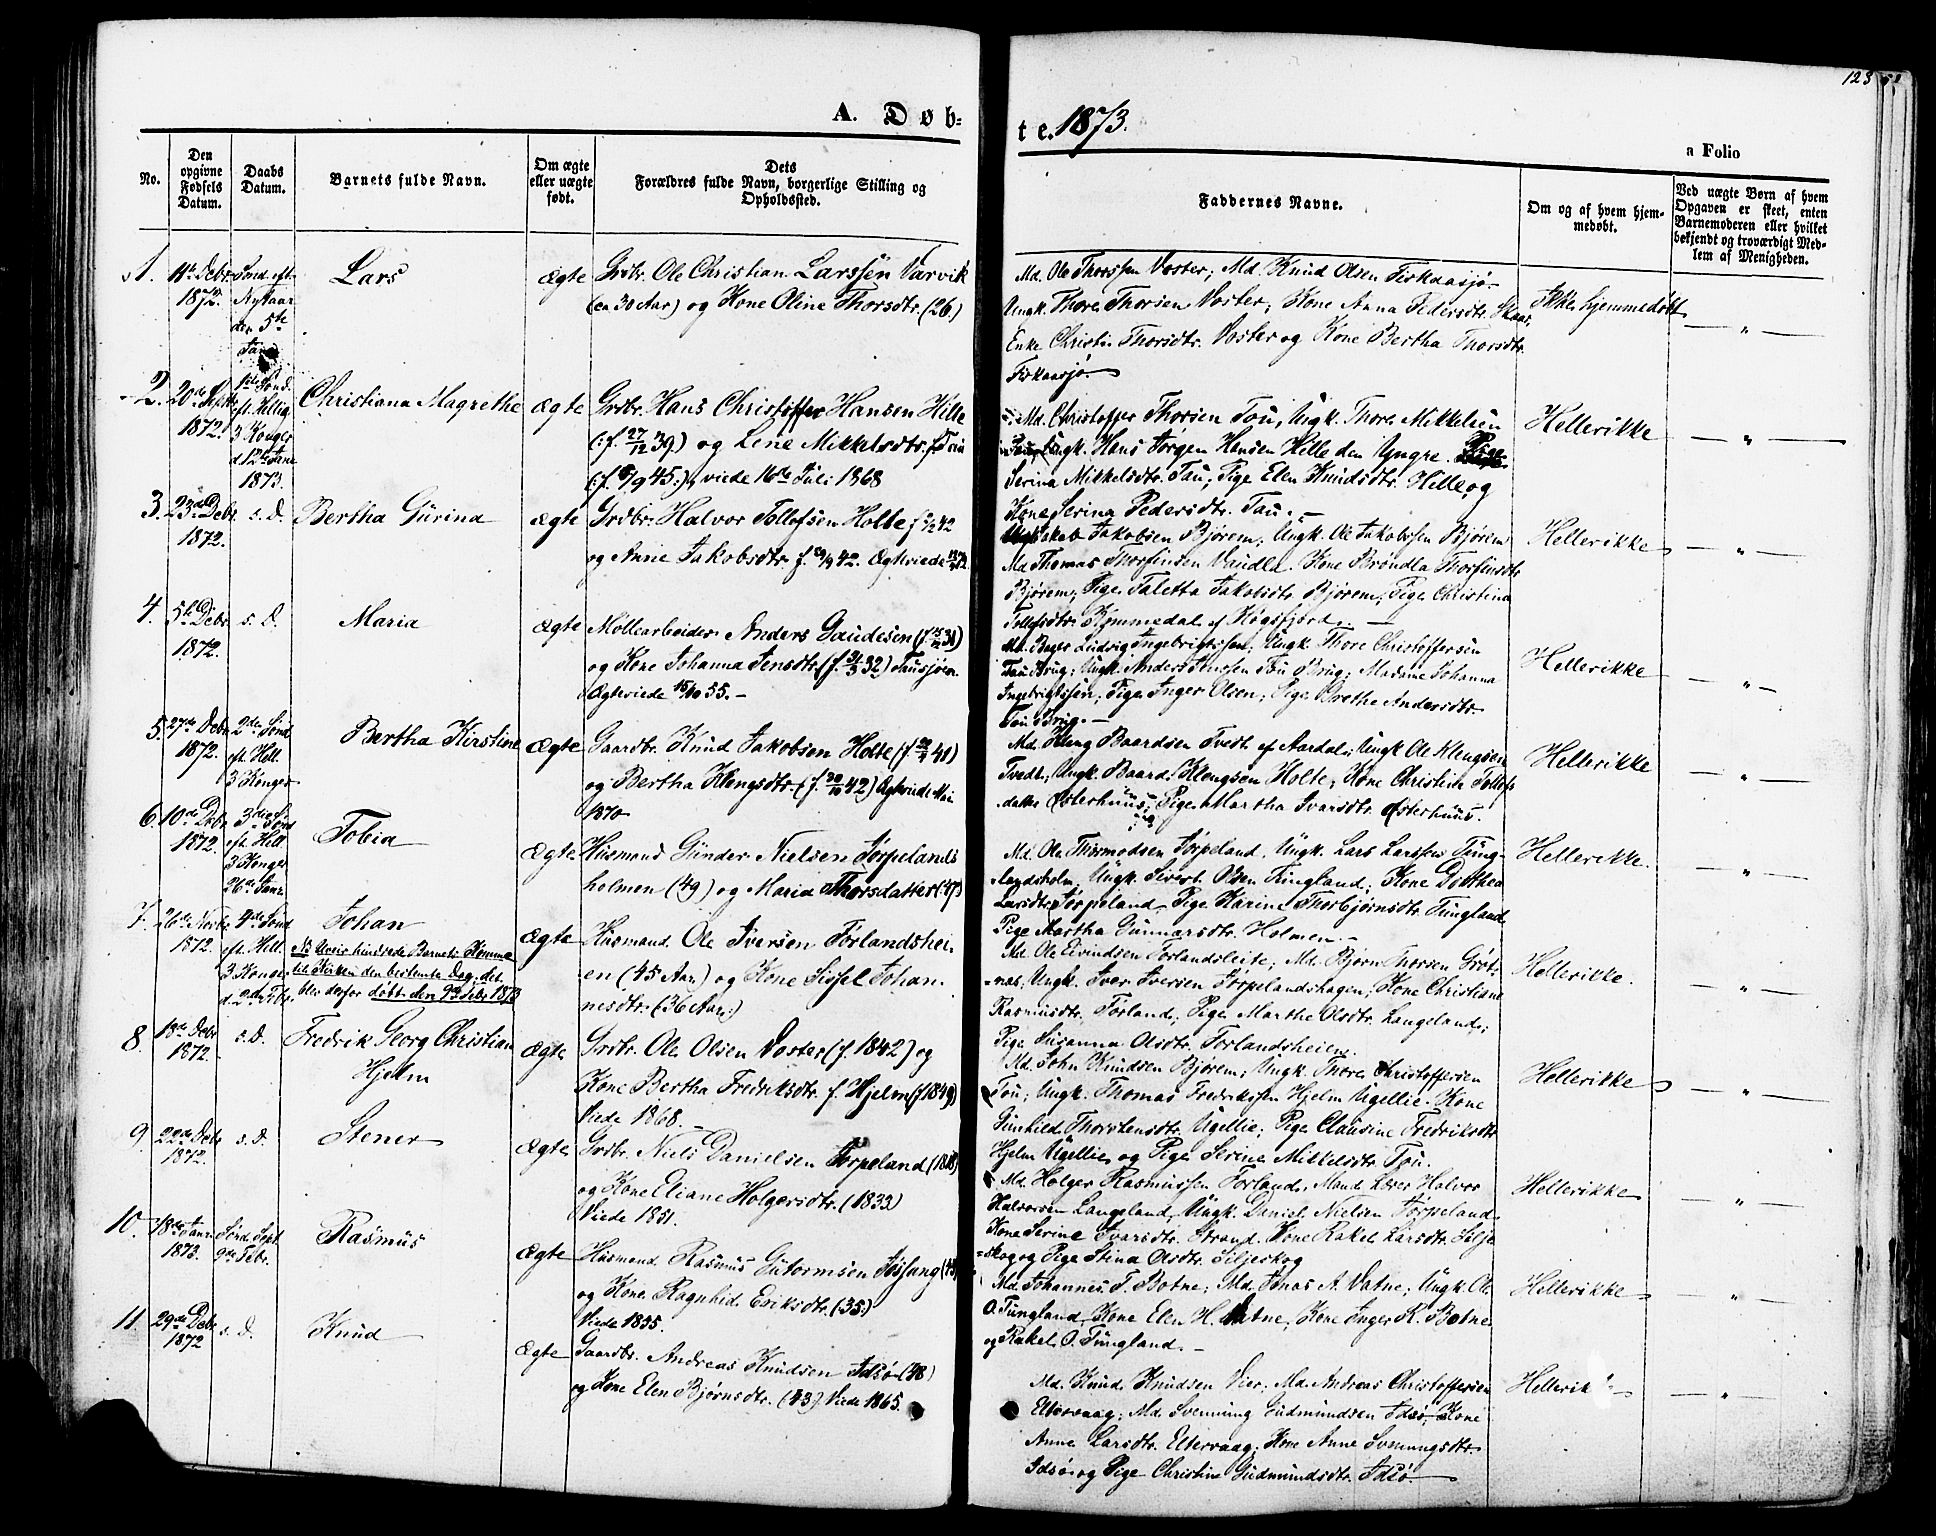 123
A. Døb-
te. 1873.
a Folio
No.
Den opgivne Fødsels Datum.
Daabs Datum.
Barnets fulde Navn.
Om ægte eller uægte født.
Dets Forældres fulde Navn, borgerlige Stilling og Opholdssted.
Faddernes Navne.
Om og af hvem hjemmedøbt.
Ved uægte Børn af hvem Opgaven er skeet, enten Barnemoderen eller hvilket bekjendt og troværdigt Medlem af Menigheden.
1. 11te Debr 1872.
Sønd. eft. Nytaar den 5te Janr
Lars
Ægte
Grdbr. Ole Christian Larssen Varvik
(ca 30 Aar) og Kone Oline Thorsdtr. (26.)
Md. Ole Thorssen Voster; Md. Knud Olsen Fiskaasjø
Ungk. Thore Thorsen Voster; Kone Anna Pedersdtr. Skaar,
Enke Christin Thorsdtr. Voster og Kone Bertha Thorsdtr.
Fiskaasjø.
Ikke hjemmedøbt
— " —
2. 20de Septr 1872.
1ste Sønd. eft. Hellig 3 Konger d. 12te Janr 1873.
Christiana Magrethe
Ægte
Grdbr. Hans Christoffer Hansen Hille
(:f. 27/12 39) og Lene Mikkelsdtr. f. Tau
(:f. 9/9 45:), viede 16de Juli 1868
Md. Christoffer Thorsen Tou, Ungk. Thore Mikkelsen
Ungk. Hans Jørgen Hansen Hille den Yngre.
Serina Mikkelsdtr. Tau; Pige Elen Knudsdtr. Hille, og
Kone Serina Pedersdtr. Tau. —
Hellerikke
— " —
3. 23de Debr 1872.
s. D.
Bertha Gurina
Ægte
Grdbr. Halvor Tollofsen Holte f. 42
og Anne Jakobsdtr. f. 42. Ægteviede
Jakob Jakobsen Bjørem; Ungk. Ole Jakobssen Bjørem
Md Thomas Thorfinsen Vaudla. Kone Brøndla Thorfinsdtr
Bjørem; Pige Taletta Jakobsdtr. Bjørem; Pige Christina
Tollefsdtr. Kommedal af Høgsfjord. —
Hellerikke
— " —
4. 5te Debr 1872.
s. D.
Maria
Ægte
Møllearbeider Anders Gaudesen (f. 31)
og Kone Johanna Jensdtr. (f. 32) Tausjøen
Ægteviede 15/10 55. —
Md. Ludvig Ingebrigtssen; Ungk. Thore Christoffersen
Tau Brug; Ungk. Anders Jenssen Tou Brug; Madame Johanna
Ingebrigtssen; Pige Inger Olsen; Pige Brethe Andersdtr
Tou Brug. —
Hellerikke
— " —
5. 27de Debr 1872.
2den Sønd eft. Hell. 3 Konger
Bertha Kirstine
Ægte
Gaardbr. Knud Jakobsen Holte (f. 41)
og Bertha Klengsdtr. (f. 30/10 42) Ægteviede Mai
1870
Md. Kleng Baardsen Tvedt af Aardal; Ungk Ole Klengsen
Tvedt; Ungk. Baard Klengsen Holte; Kone Christina Tollefs
datter Østerhuus; Pige Martha Ivarsdtr. Østerhuus.
Hellerikke
— " —
6. 10de Debr 1872.
3die Sønd eft. Hell 3 Konger 26de Janr.
Tobia
Ægte
Husmand Gunder Nielsen Jørpelands
holmen (49) og Maria Thorsdatter (47)
Md. Ole Thormodsen Jørpeland, Ungk. Lars Larssen Tung-
landsholm; Ungk. Sivert Olsen Tungland; Kone Dorthea
Larsdtr. Jørpeland, Pige Karine Thorbjørnsdtr. Tungland
Pige Martha Gunnarsdtr. Holmen. —
Hellerikke.
— " —
7. 26de Novbr 1872.
4de Sønd eft. Hell. 3 Konger d. 2den Febr.
Johan
NB Uveir hindrede Barnets Komme
til Kirken den bestemte Dag, det
blev derfor døbt den 9de Febr 1873
Ægte
Husmand Ole Iversen Førlandshei-
en (45 Aar) og Kone Sissel Johan-
nesdtr. (36 Aar.)
Md. Ole Eivindsen Førlandsleite; Md. Bjørn Thorsen Grøt-
nas, Ungk. Iver Iversen Jørpelandshagen; Kone Christiane
Rasmusdtr. Førland; Pige Marthe Olsdtr. Langeland;
Pige Susanna Olsdtr. Førlandsheien.
Hellerikke.
— " —
8. 18de Debr 1872.
s. D.
Fredrik Georg Christian Hjelm
Ægte
Grdbr. Ole Olsen Voster (f. 1842) og
Kone Bertha Fredriksdtr. f. Hjelm (f 1849)
Viede 1868.
Md. John Knudsen Bjørem; Ungk. Thore Christoffersen
Tou; Ungk. Thomas Fredrikssen Hjelm Ugellie. Kone
Gunhild Thorstensdtr. Ugellie; Pige Clausine Fredriksdtr
Hjelm Ugellie og Pige Serine Mikkelsdtr. Tou.
Hellerikke
— " —
9. 22de Debr 1872.
s. D.
Stener
Ægte
Grdbr. Niels Danielsen Jørpeland (1818)
og Kone Eliane Holgersdtr. (1833)
Viede 1851.
Md. Holger Rasmussen Førland, Mand Lærer Halvor
Halvorsen Langeland, Ungk. Daniel Nielsen Jørpeland
Kone Serine Ivarsdtr. Strand. Kone Rakel Larsdtr. Silje
skog og Pige Stina Olsdtr. Siljeskog
Hellerikke
— " —
10. 18de Janr 1873.
Sønd. Sept. 9de Febr.
Rasmus
Ægte
Husmand Rasmus Gutormsen Jøssang
og Kone Ragnhild Eriksdtr. (35)
Viede 1855.
Md. Johannes T. Botne; Md. Jonas A. Vatne; Ungk. Ole
O. Tungland, Kone Elen H. Vatne, Kone Inger K. Botne
og Rakel O. Tungland. —
Hellerikke
— " —
11. 29de Debr 1872
s. D.
Knud
Ægte
Gaardbr. Andreas Knudsen Idsø (48)
og Kone Elen Bjørnsdtr. (43). Viede 1865.
Md. Knud Knudsen Vier, Md. Andreas Christoffersen
Eltervaag; Md. Svenning Gudmundsen Idsø, Kone
Anne Larsdtr. Eltervaag; Kone Anne Svenningsdtr.
Idsø og Pige Christine Gudmundsdtr. Idsø.
— " —